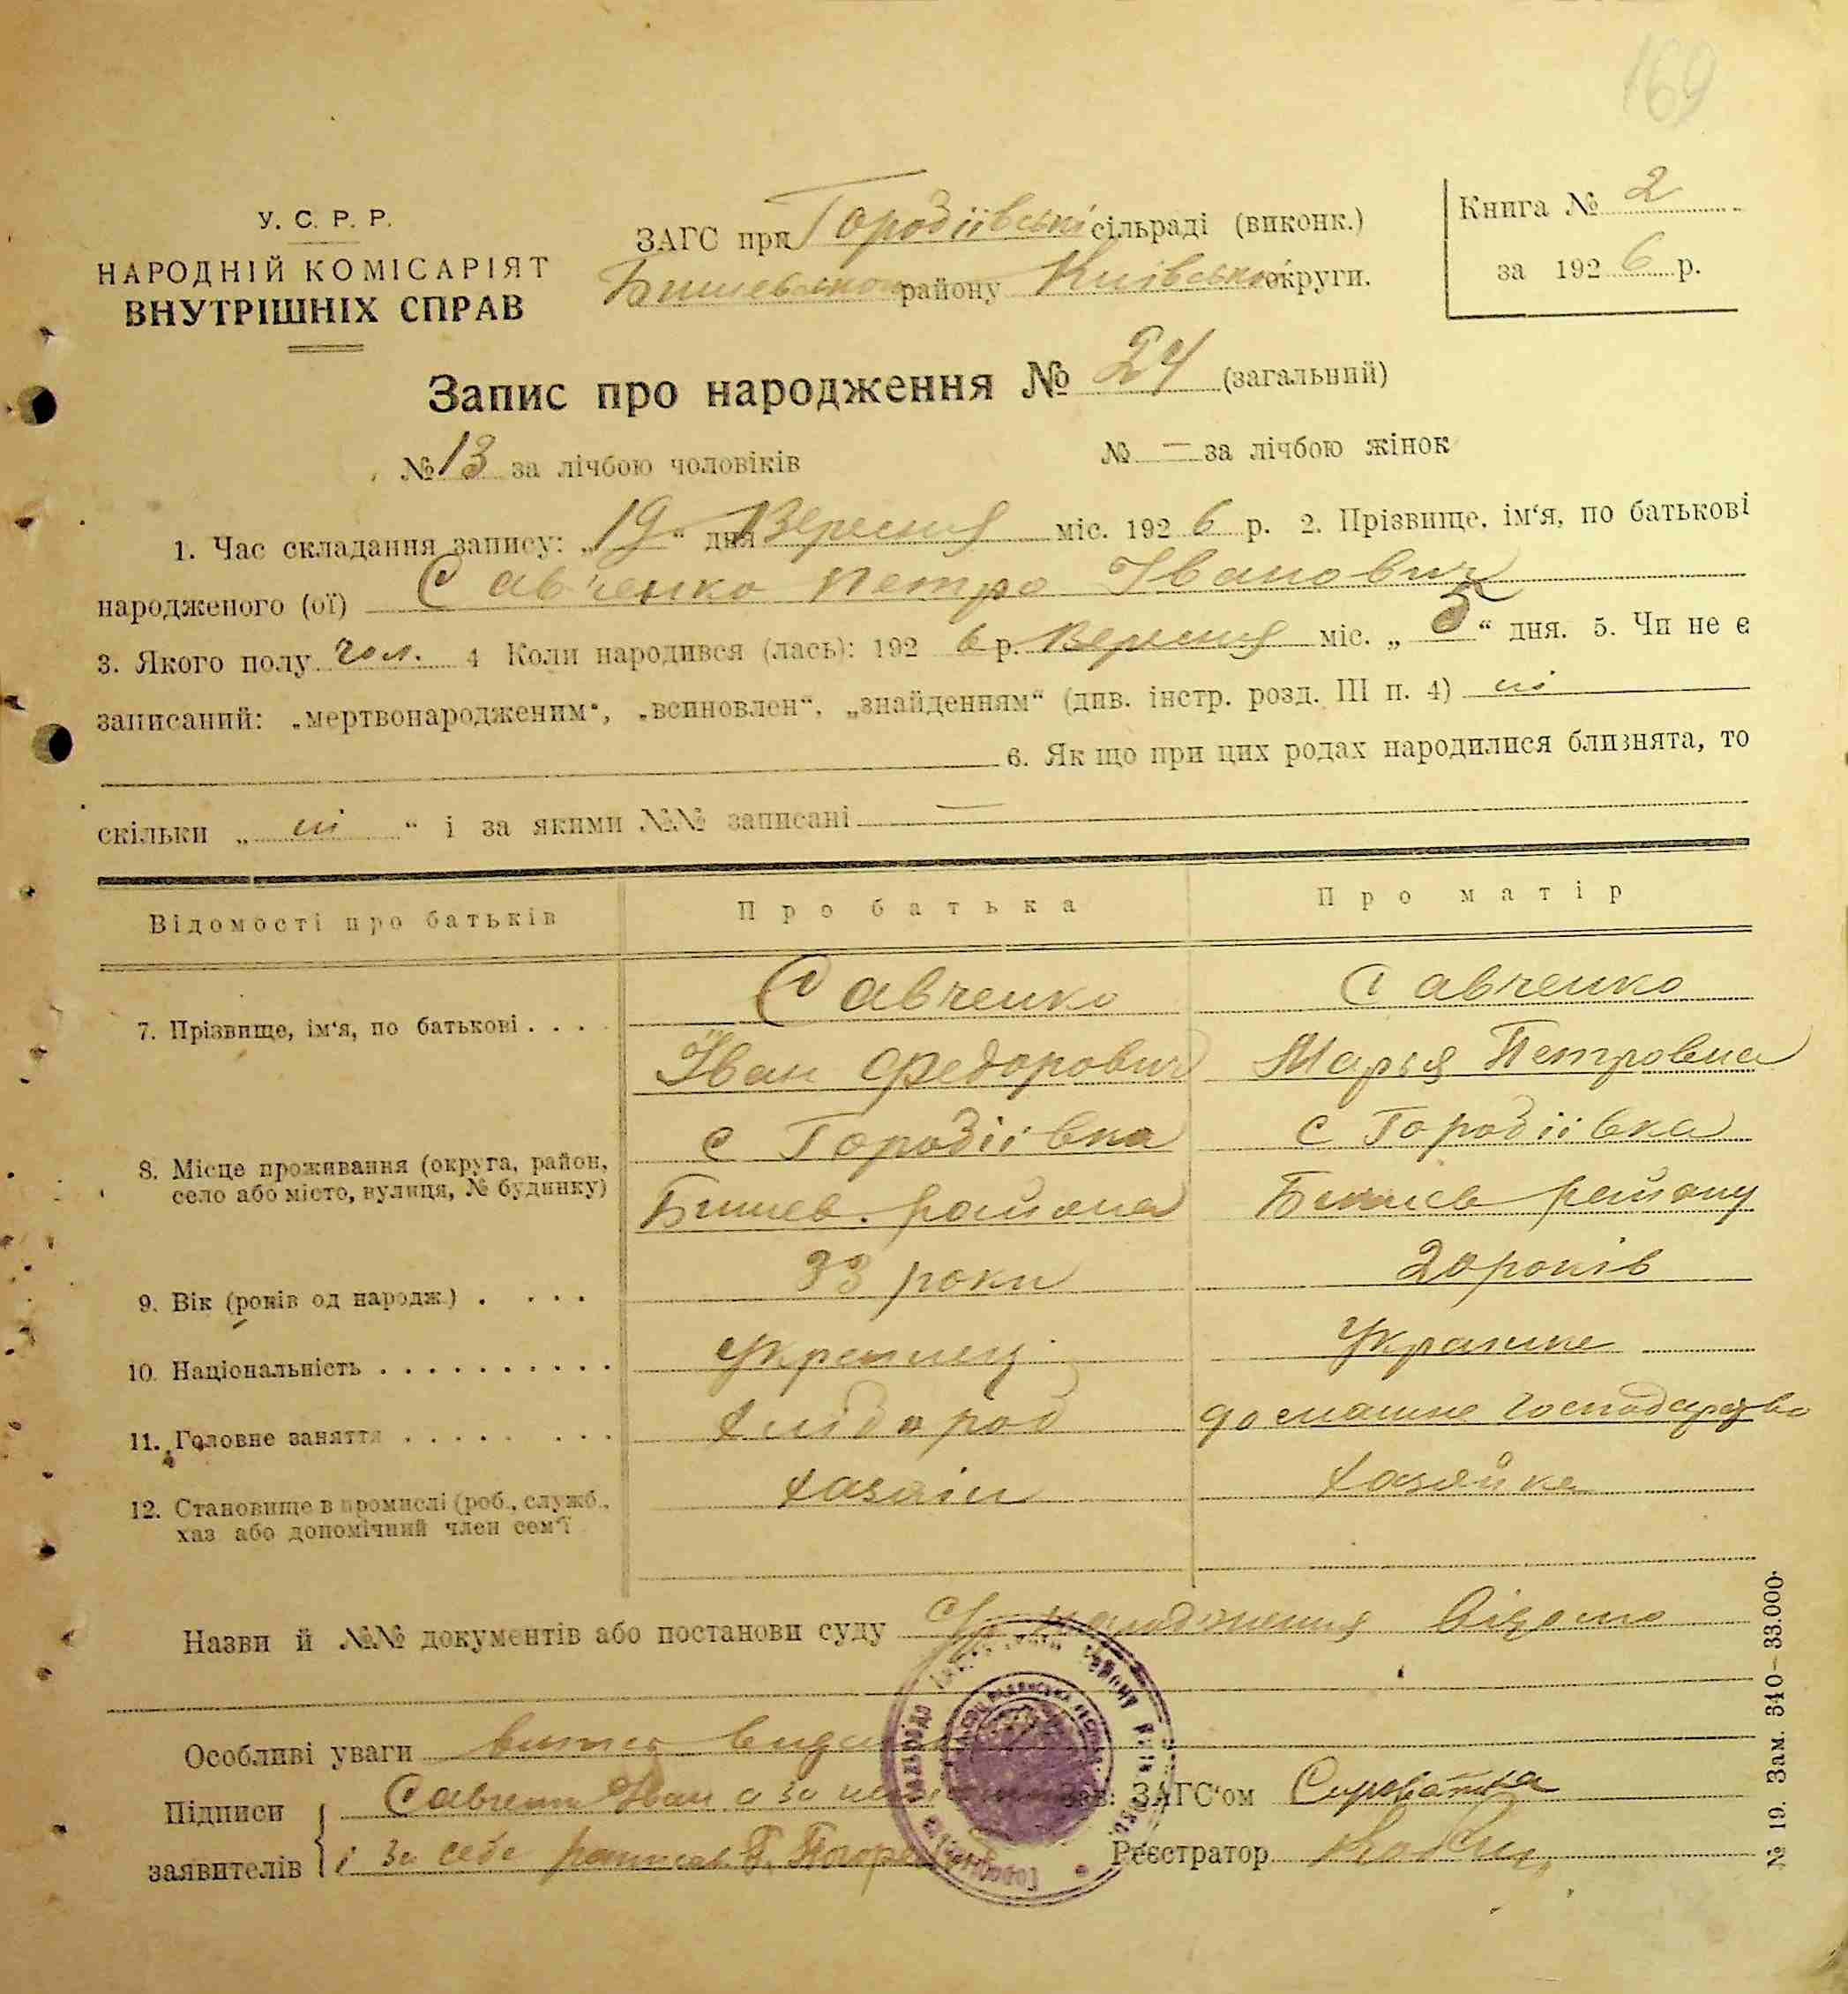 169
У. С. Р. Р.
НАРОДНІЙ КОМІСАРІЯТ
ВНУТРІШНІХ СПРАВ
ЗАГС при Городіївські сільраді (виконк.)
Бишевського району Київської округи.
Книга № 2
за 1926 р.
Запис про народження № 24 (загальний)
№ 13 за лічбою чоловіків № — за лічбою жінок
1. Час складання запису: „19“ дня Вересня міс. 1926 р. 2. Прізвище, ім‘я, по батькові
народженого (ої) Савченко Петро Іванович
3. Якого полу чол. 4 Коли народився (лась): 1926 р. Вересня міс. „5“ дня. 5. Чи не є
записаний: „мертвонародженим“, „всиновлен“, „знайденням“ (див. інстр. розд. III п. 4) ні
6. Як що при цих родах народилися близнята, то
скільки „ ні “ і за якими №№ записані —
Відомості про батьків Про батька Про матір
7. Прізвище, ім‘я, по батькові . . . . Савченко Савченко
Іван Федорович Марья Петровна
с Городіївка с Городіївка
8. Місце проживання (округа, район,
село або місто, вулиця, № будинку) Бишев. района Бишев району
9. Вік (років од народж.) . . . . 33 роки 20 років
10. Національність . . . . . . . . . . Украинец Украинка
11. Головне заняття . . . . . . . . Хлібороб домашне господарство
12. Становище в промислі (роб., служб.,
хаз або допомічний член сем‘ї хазяін хазяйка
Назви й №№ документів або постанови суду
Особливі уваги
Підписи Савченко Іван а за
Зав. ЗАГС‘ом Сироватка
заявителів і за себе
Реєстратор
№ 19. Зам. 340—33.000.